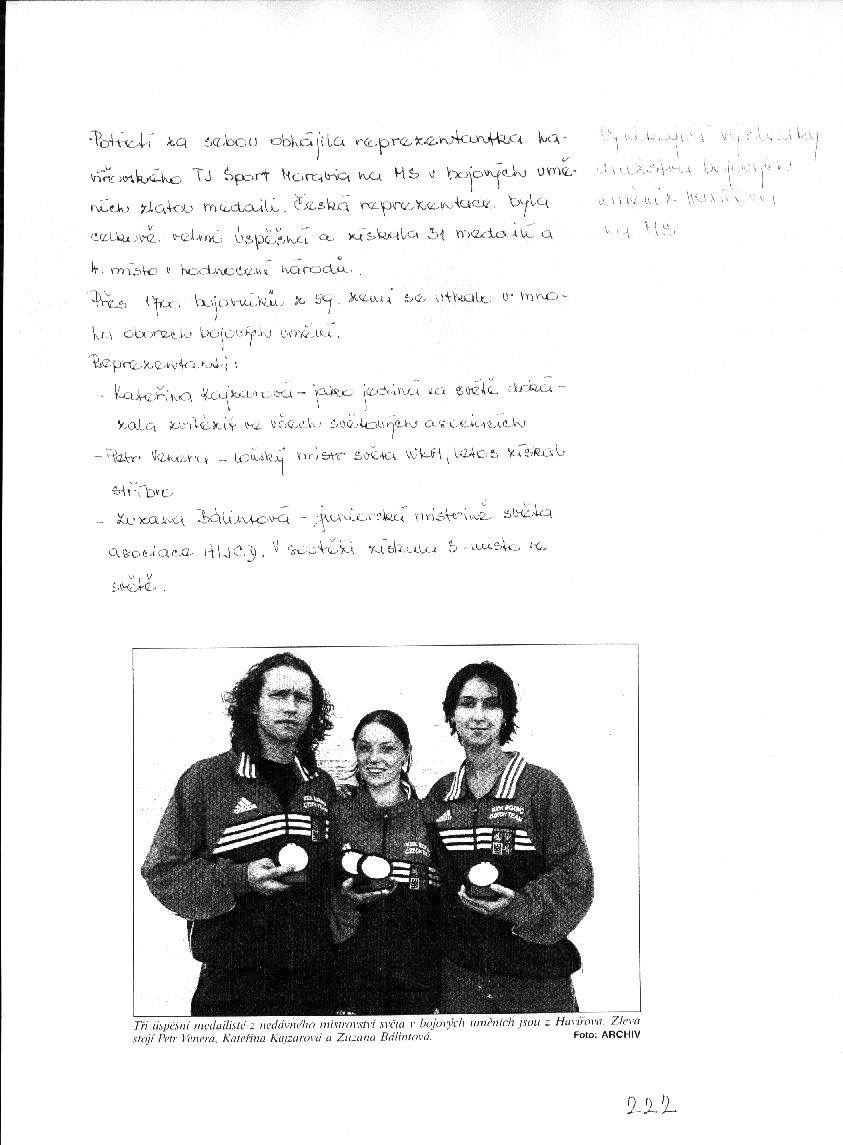 Potřetí za sebou obhájila reprezentantka ha-
vířovského TJ Sport Moravia na MS v bojových umě-
ních zlatou medaili. Česká reprezentace byla
celkově velmi úspěšná a získala 31 medailí a
4. místo v hodnocení národů.
Přes 1700 bojovníků z 59. zemí se utkalo v mno-
ha oborech bojových umění.
Reprezentanti:
- Kateřina Kajzarová - jako jediná na světě doká-
zala zvítězit ve všech světových asociacích
- Petr Venera - loňský mistr světa WKA, letos získal
stříbro
- Zuzana Bálintová - juniorská mistrině světa
asociace . V soutěži získala 3. místo na
světě.
Vynikající výsledky
družstva bojových
umění z Havířova
na MS
adidas
KICK BOXING
CZECH TEAM
KICK BOXING
CZECH TEAM
KICK BOXING
CZECH TEAM
Tři úspěšní medailisté z nedávného mistrovství světa v bojových uměních jsou z Havířova. Zleva
stojí Petr Venera, Kateřina Kajzarová a Zuzana Bálintová. Foto: ARCHIV
222